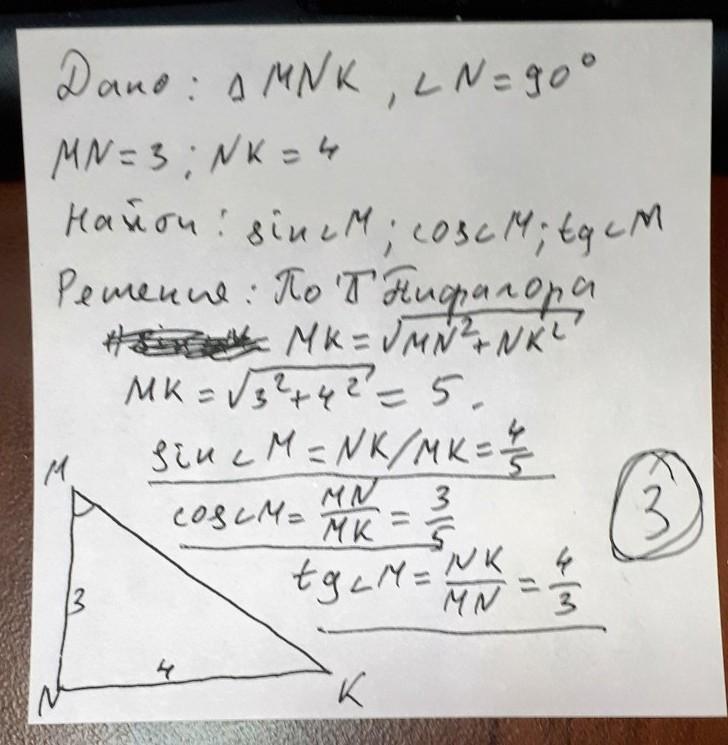 Дано: Δ MNK, ∠N=90°
MN=3; NK=4
Найти: sin∠M; cos∠M; tg∠M
Решение: По Т Пифагора
MK=√MN²+NK²
MK=√3²+4² = 5.
sin∠M=NK/MK=4/5
cos∠M=MN/MK=3/5
tg∠M=NK/MN=4/3
3
M
3
4
N
K